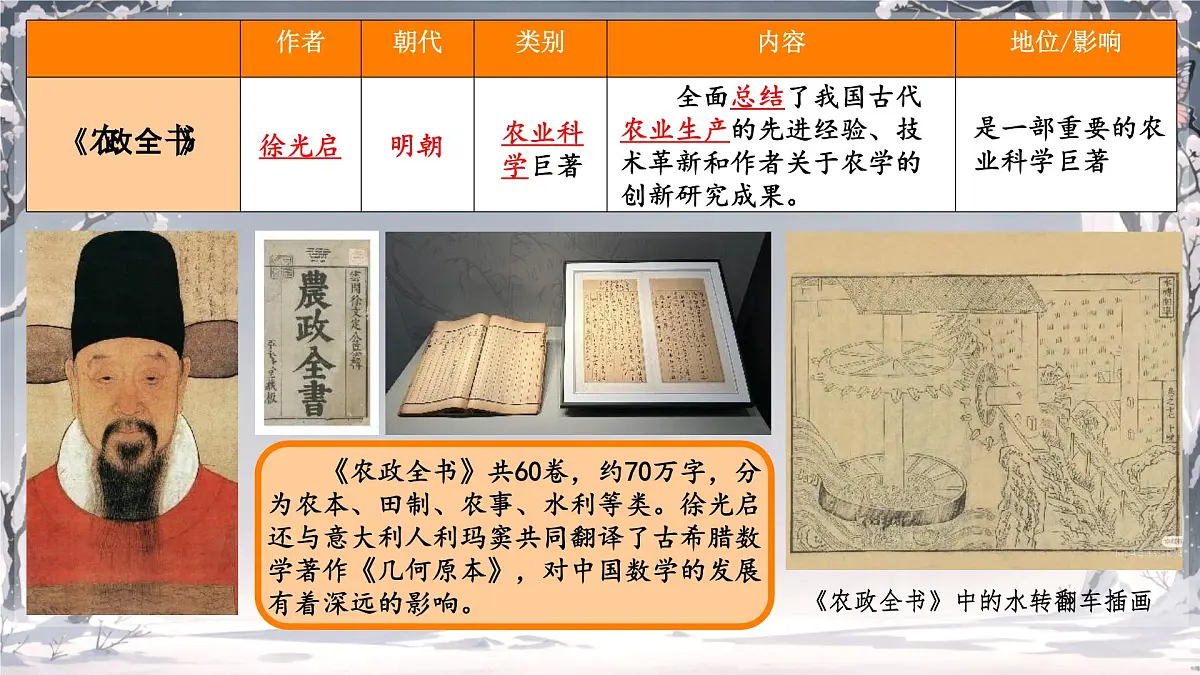 作者
朝代
类别
内容
地位/影响
《农政全书》
徐光启
明朝
农业科
学巨著
全面总结了我国古代
农业生产的先进经验、技
术革新和作者关于农学的
创新研究成果。
是一部重要的农
业科学巨著
農政全書
《农政全书》共60卷，约70万字，分
为农本、田制、农事、水利等类。徐光启
还与意大利人利玛窦共同翻译了古希腊数
学著作《几何原本》，对中国数学的发展
有着深远的影响。
《农政全书》中的水转翻车插画